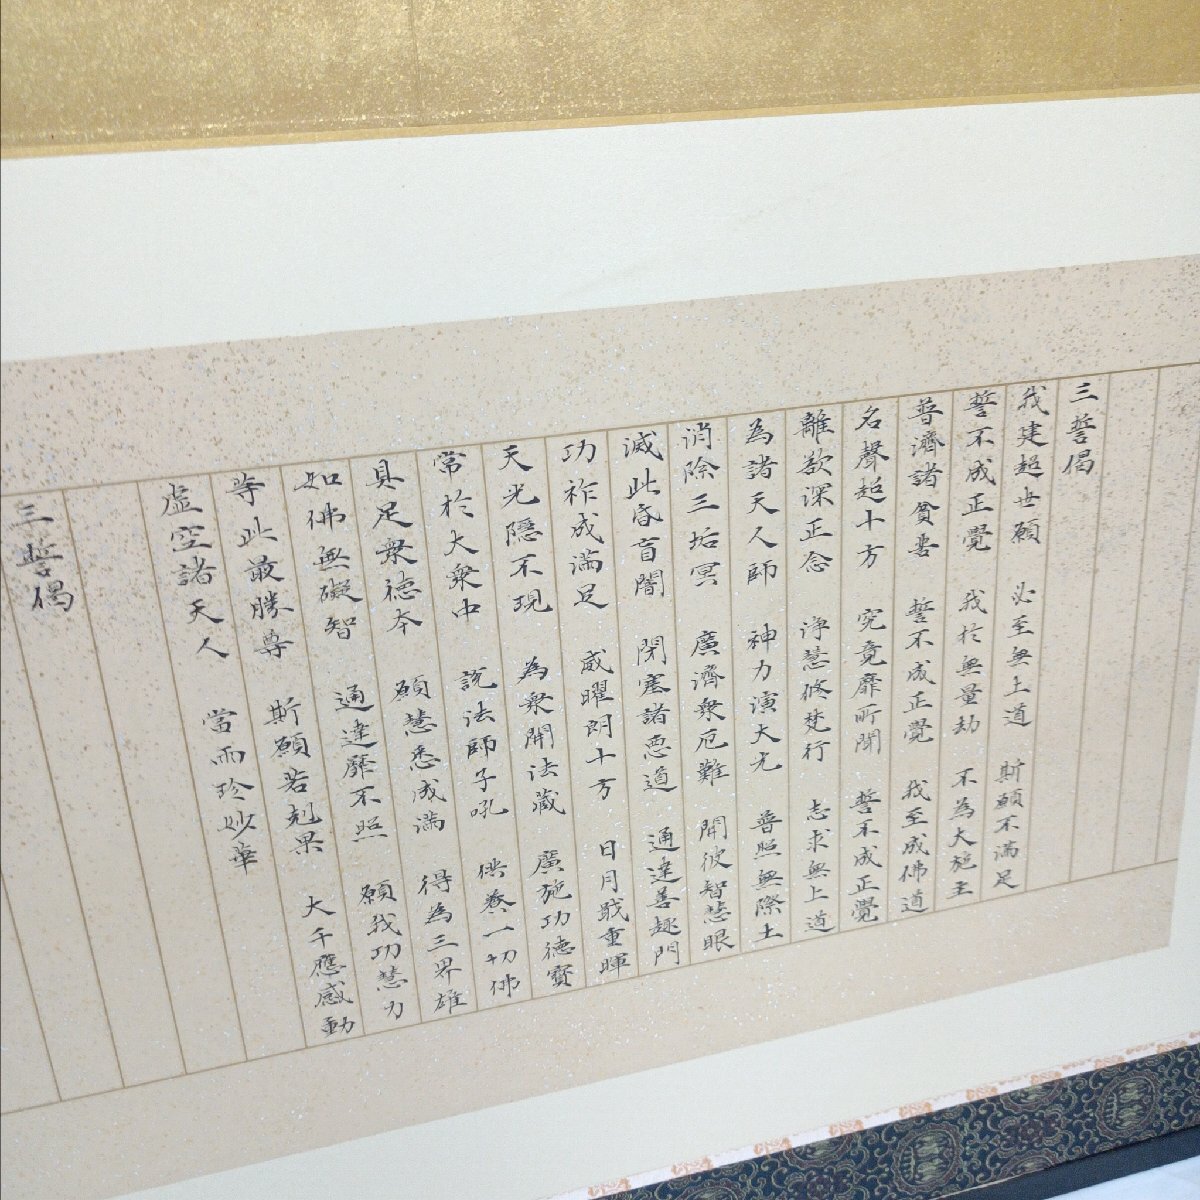 三誓偈
我建超世願 必至無上道 斯願不満足
誓不成正覺 我於無量劫 不為大施主
普濟諸貧苦 誓不成正覺 我至成佛道
名聲超十方 究竟靡所聞 誓不成正覺
離欲深正念 浄慧修梵行 志求無上道
為諸天人師 神力演大光 普照無際土
消除三垢冥 廣濟衆厄難 開彼智慧眼
滅此昏盲闇 閉塞諸悪道 通達善趣門
功祚成満足 威曜朗十方 日月戢重暉
天光隱不現 為衆開法蔵 廣施功徳寳
常於大衆中 説法師子吼 供養一切佛
具足衆徳本 願慧悉成満 得為三界雄
如佛無礙智 通達靡不照 願我功慧力
等此最勝尊 斯願若剋果 大千應感動
虚空諸天人 當雨珍妙華
三誓偈